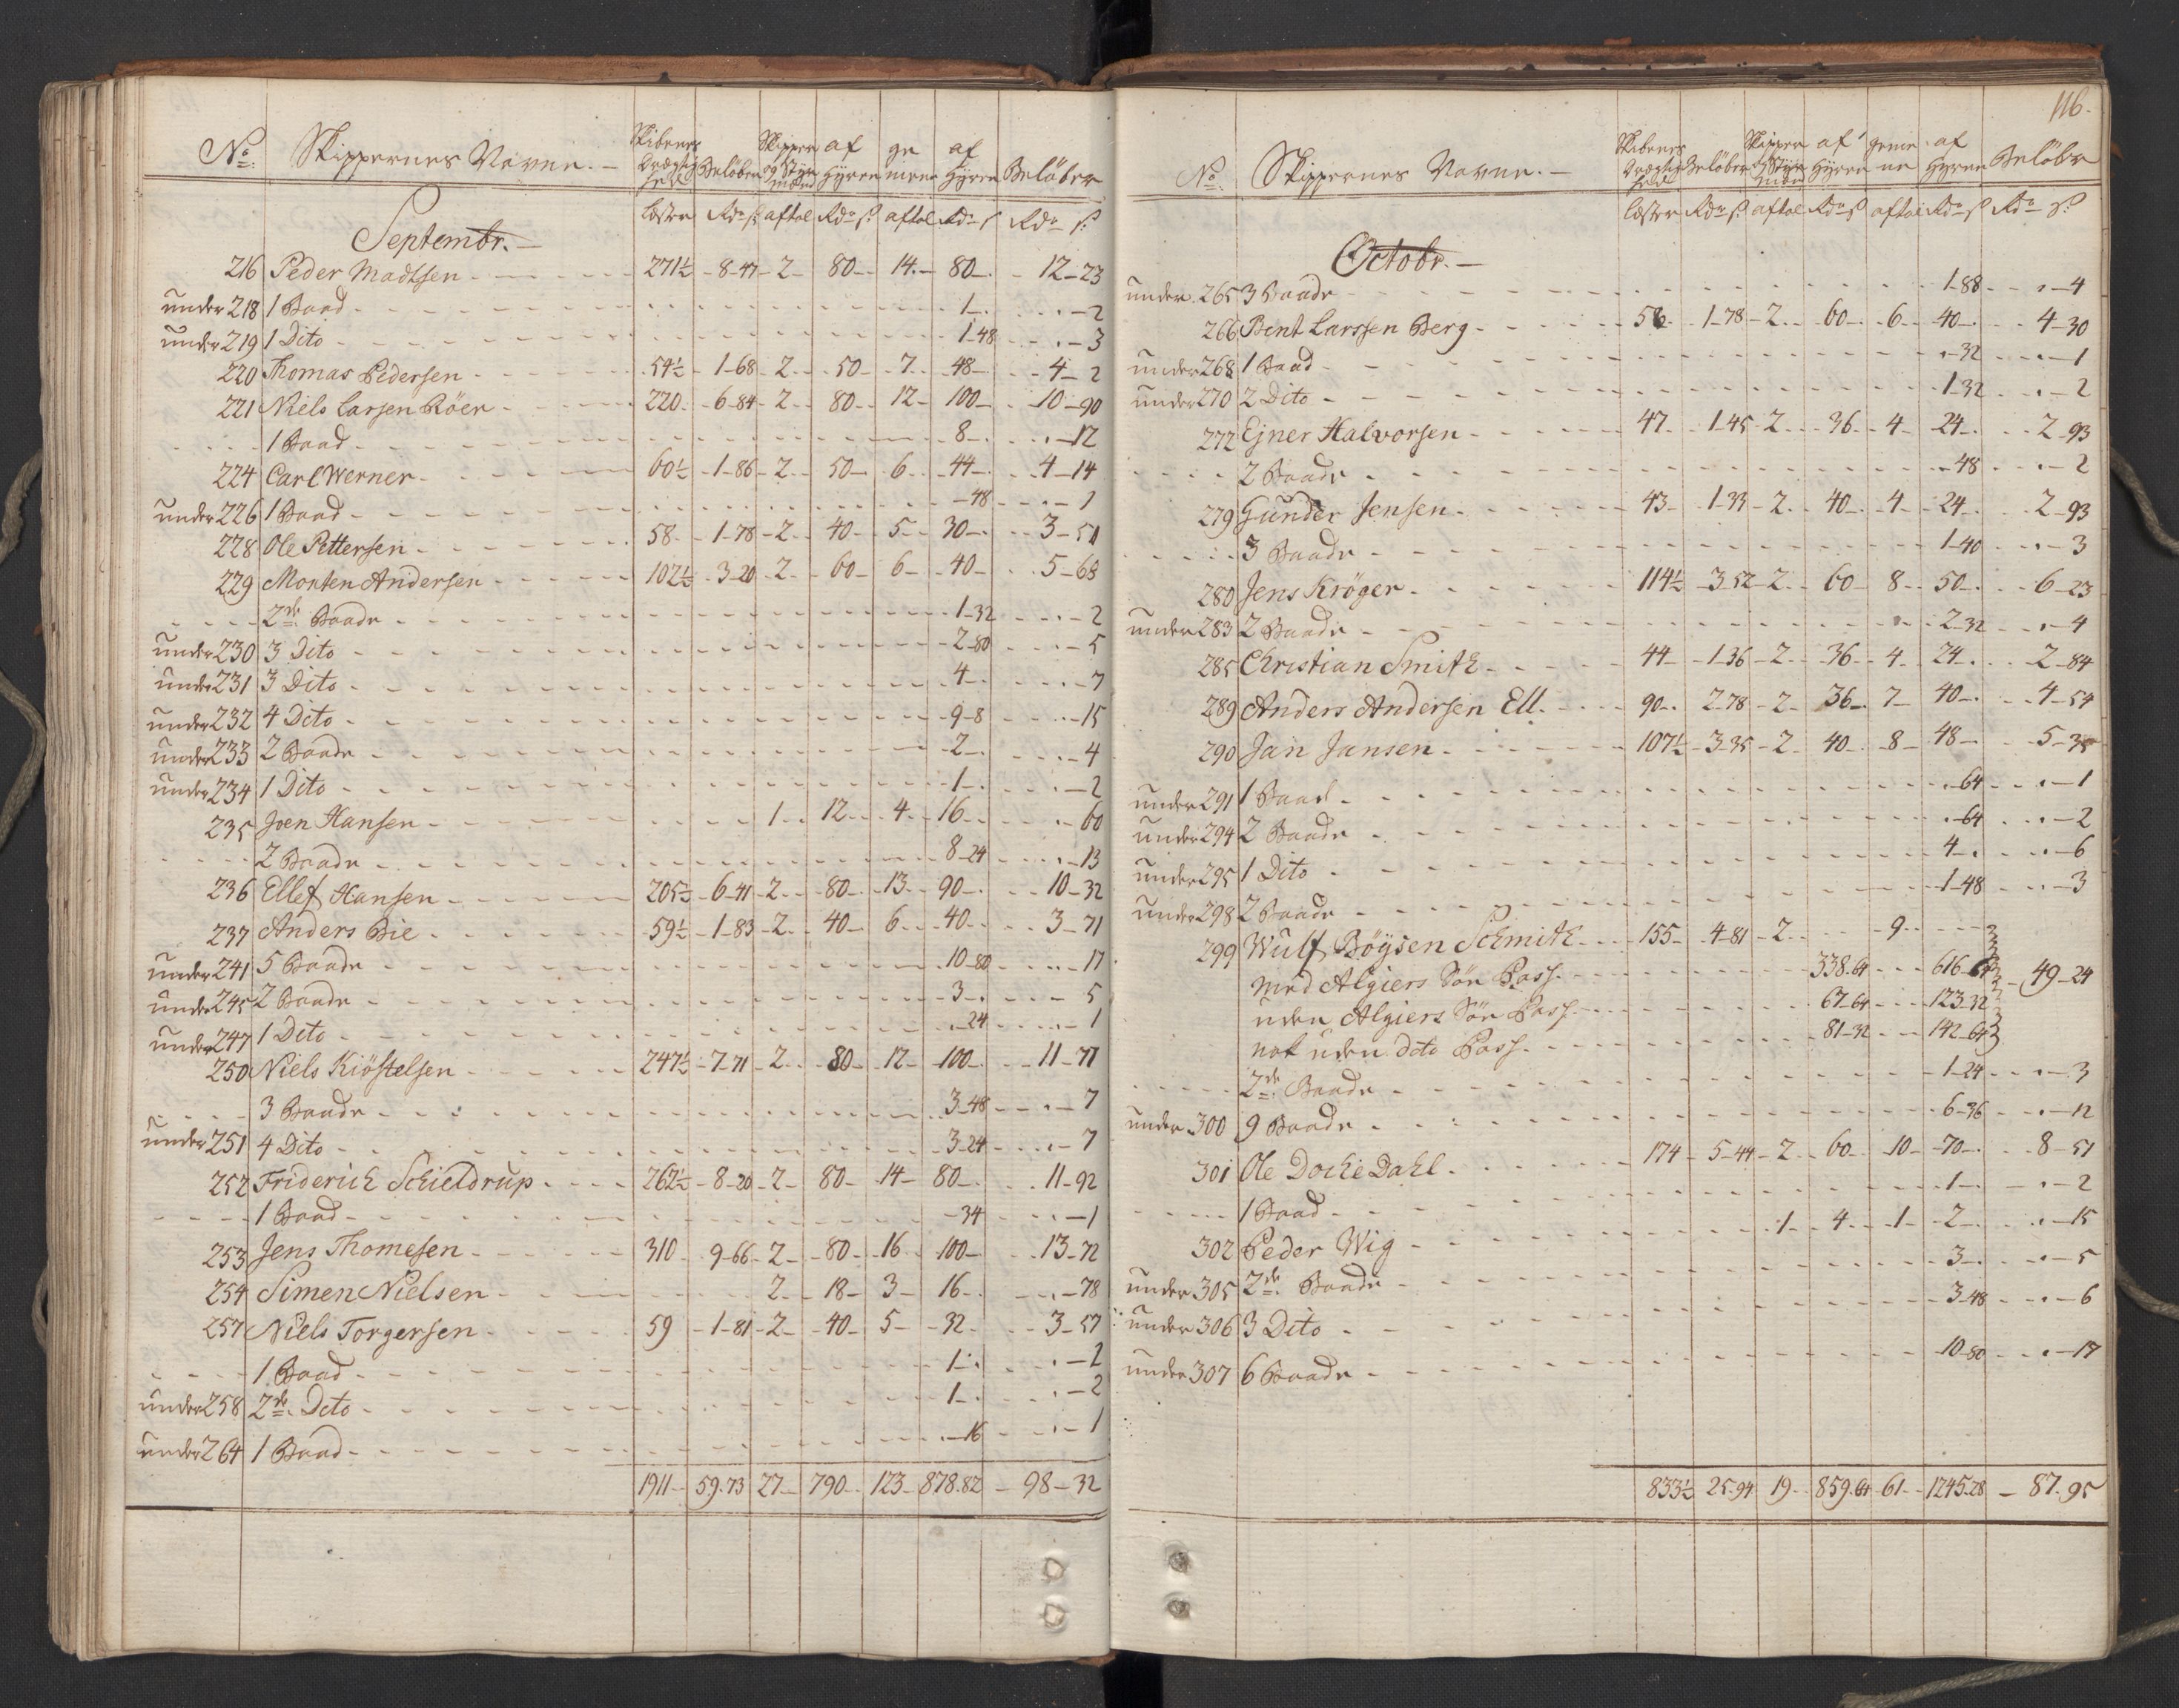 No. Skippernes Navne. Skibenes Drægtighed Beløber Skipper og Styrmænd af Hyren gemene af Hyren Beløber
læster Rdr ß aftal Rdr ß aftal Rdr ß Rdr ß
Septembr.
216 Peder Madtsen 271½ 8-47 2 80 14 80 12-23
under 218 1 Baad 1 2
under 219 1 Dito 1-48 3
220 Thomas Pedersen 54½ 1-68 2 50 7 48 4-2
221 Niels Larsen Röer 220 6-84 2 80 12 100 10-90
1 Baad 8 12
224 Carl Werner 60½ 1-86 2 50 6 44 4-14
under 226 1 Baad 48 1
228 Ole Pettersen 58 1-78 2 40 5 30 3-51
229 Morten Andersen 102½ 3-20 2 60 6 40 5-63
2de Baade 1-32 2
under 230 3 Dito 2-80 5
under 231 3 Dito 4 7
under 232 4 Dito 9-8 15
under 233 2 Baade 2 4
under 234 1 Dito 1 2
235 Joen Hansen 1 12 4 16 60
2 Baade 8-24 13
236 Ellef Hansen 205½ 6-41 2 80 13 90 10-32
237 Anders Bie 59½ 1-83 2 40 6 40 3-71
under 241 5 Baade 10-80 17
under 245 2 Baade 3 5
under 247 1 Dito 24 1
250 Niels Kiöstelsen 247½ 7-71 2 80 12 100 11-77
3 Baade 3-48 7
under 251 4 Dito 3-24 7
252 Friderich Schieldrup 262½ 8-20 2 80 14 80 11-92
1 Baad 34 1
253 Jens Thomesen 310 9-66 2 80 16 100 13-72
254 Simen Nielsen 2 18 3 16 78
257 Niels Torgersen 59 1-81 2 40 5 32 3-57
1 Baad 1 2
under 258 2de Dito 1 2
under 264 1 Baad 16 1
1911 59.73 27 790 123 878.82 98-32
116.
No. Skippernes Navne. Skibenes Drægtighed Beløber Skipper og Styrmænd af Hyren gemene af Hyren Beløber
læster Rdr ß aftal Rdr ß aftal Rdr ß Rdr ß
Octobr.
under 265 3 Baade 1-88 4
266 Bent Larssen Berg 58 1-78 2 60 6 40 4-30
under 268 1 Baad 32 1
under 270 2 Dito 1-32 2
272 Ejner Halvorsen 47 1-45 2 36 4 24 2-93
2 Baade 48 2
279 Gunder Jensen 43 1-33 2 40 4 24 2-93
3 Baade 1-40 3
280 Jens Kröger 114½ 3-52 2 60 8 50 6-23
under 283 2 Baade 2-32 4
285 Christian Smith 44 1-36 2 36 4 24 2-84
289 Anders Andersen Ell. 90 2-78 2 36 7 40 4-54
290 Jan Jansen 107½ 3-35 2 40 8 48 5-35
under 291 1 Baad 64 1
under 294 2 Baade 64 2
under 295 1 Dito 4 6
under 298 2 Baade 1-48 3
299 Wulf Böysen Schmith 155 4-81 2 9
med Algiers Söe Pass 338.64 616-64 49-24
uden Algiers Söe Pass 67-64 123.32
nok uden dito Pass 81-32 142-64
2de Baade 1-24 3
under 300 9 Baade 6-36 12
301 Ole Docke Dahl 174 5-44 2 60 10 70 8-51
1 Baad 1 2
302 Peder Wig 1 4 1 2 15
under 305 2de Baade 3 5
under 306 3 Dito 3-48 6
under 307 6 Baade 10-80 17
833½ 25.94 19 859.64 61 1245.28 87.95